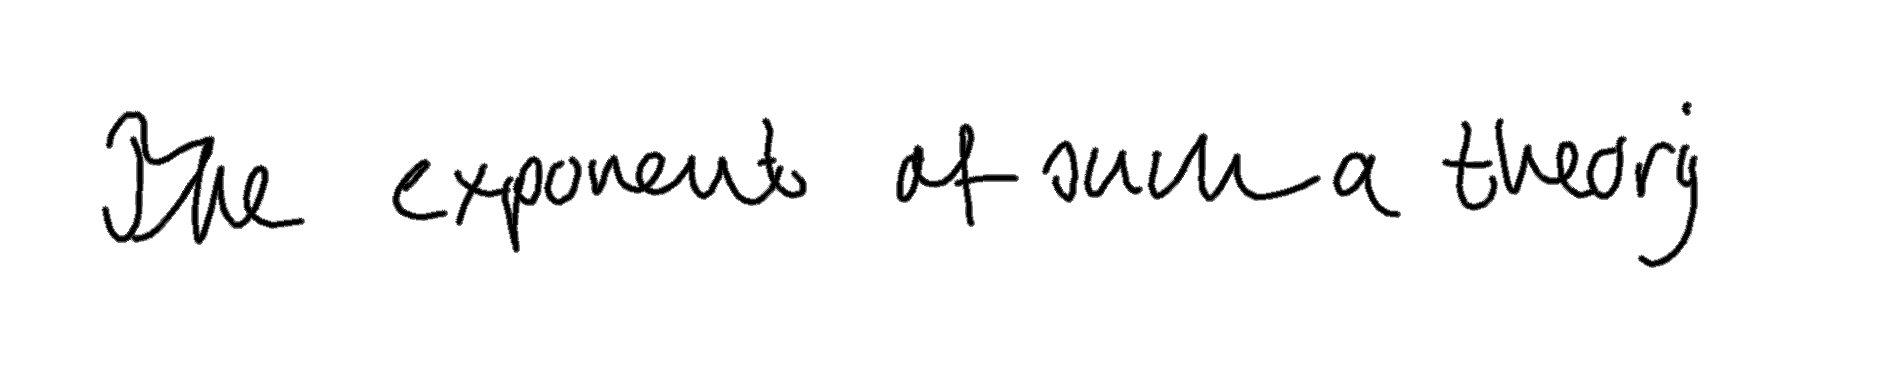 The exponent of such a theory